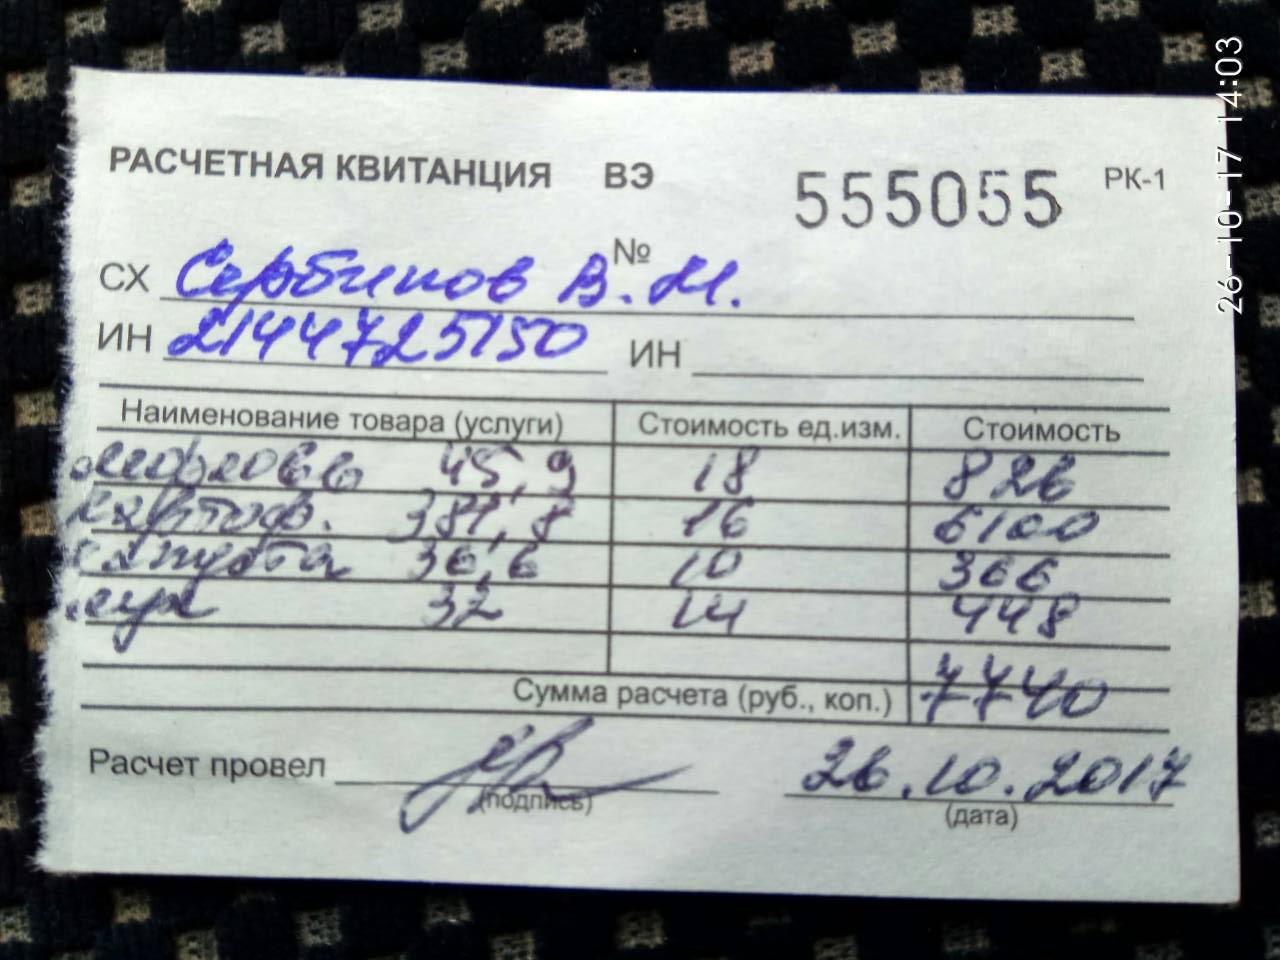 РАСЧЕТНАЯ КВИТАНЦИЯ ВЭ 555055 РК-1
№
СХ Сербинов В.М.
ИН 2144725150 ИН
Наименование товара (услуги) Стоимость ед.изм. Стоимость
морковь 45,9 18 826
картоф. 381,8 16 6100
капуста 36,6 10 366
лук 32 14 448
Сумма расчета (руб., коп.) 7740
Расчет провел 26.10.2017
(подпись) (дата)
26-10-17 14:03